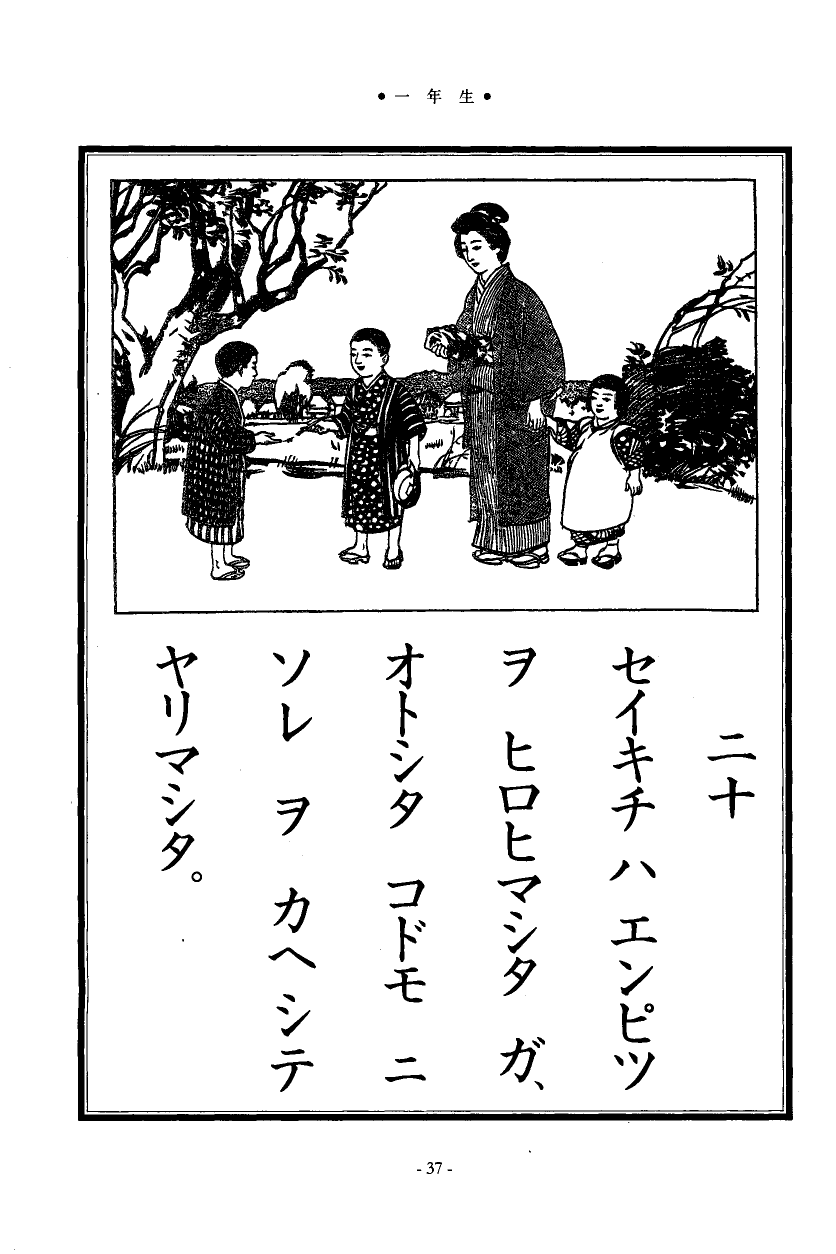 ●一年生●
二十
セイキチ ハ エンピツ
ヲ ヒロヒマシタ ガ、
オトシタ コドモ ニ
ソレ ヲ カヘシテ
ヤリマシタ。
- 37 -